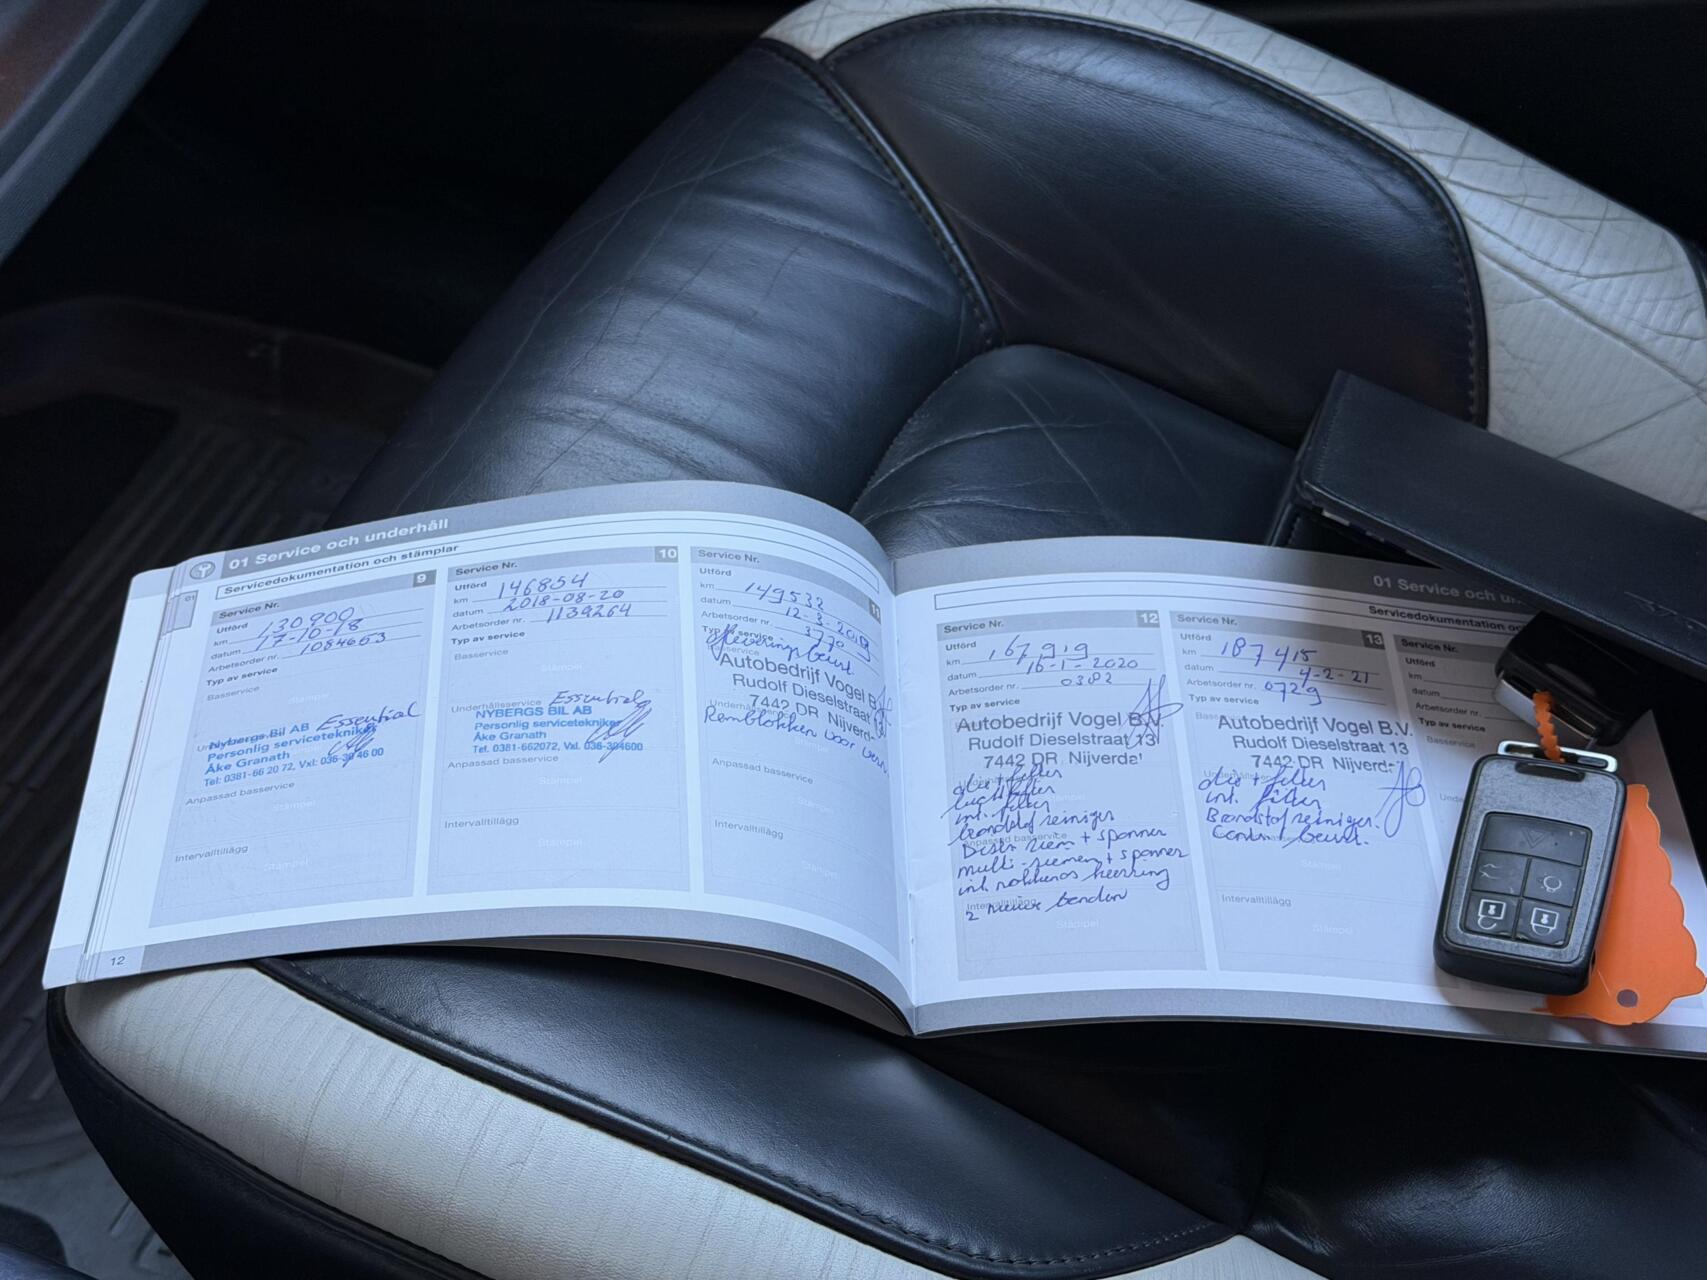 01 Service och underhåll
Servicedokumentation och stämplar
01
9
Service Nr.
Utförd
km 130900
datum 17-10-18
Arbetsorder nr. 1084653
Typ av service
Basservice
Stämpel
Essential
Nybergs Bil AB
Personlig servicetekniker
Åke Granath
Tel: 0381-66 20 72, Vxl: 036-30 46 00
Anpassad basservice
Stämpel
Intervalltillägg
Stämpel
12
10
Service Nr.
Utförd
km 146854
datum 2018-08-20
Arbetsorder nr. 1139264
Typ av service
Basservice
Stämpel
Underhållsservice Essential
NYBERGS BIL AB
Personlig servicetekniker
Åke Granath
Tel. 0381-662072, Vxl. 036-304600
Anpassad basservice
Stämpel
Intervalltillägg
Stämpel
11
Service Nr.
Utförd
km 149532
datum 12-3-2019
Arbetsorder nr. 3770
Typ av service
beurt
Autobedrijf Vogel B.
Rudolf Dieselstraat
7442 DR Nijverd
Remblokken voor
Anpassad basservice
Stämpel
Intervalltillägg
Stämpel
01 Service och un
Servicedokumentation oc
12
Service Nr.
Utförd
km 167919
datum 16-1-2020
Arbetsorder nr. 0382
Typ av service
Autobedrijf Vogel B.V.
Rudolf Dieselstraat 13
7442 DR Nijverda
olie + filter
luchtfilter
int. filter
brandstof reiniger
Distr. riem + spanner
multi-riemen + spanner
int. nokkenas keerring
Intervalltillägg
2 nieuwe banden
Stämpel
13
Service Nr.
Utförd
km 187415
datum 4-2-21
Arbetsorder nr. 0729
Typ av service
Autobedrijf Vogel B.V.
Rudolf Dieselstraat 13
7442 DR Nijverd
olie + filter
int. filter
Brandstof reiniger.
beurt.
Stämpel
Intervalltillägg
Stämpel
Service Nr.
Utförd
km
datum
Arbetsorder nr.
Typ av service
Basservice